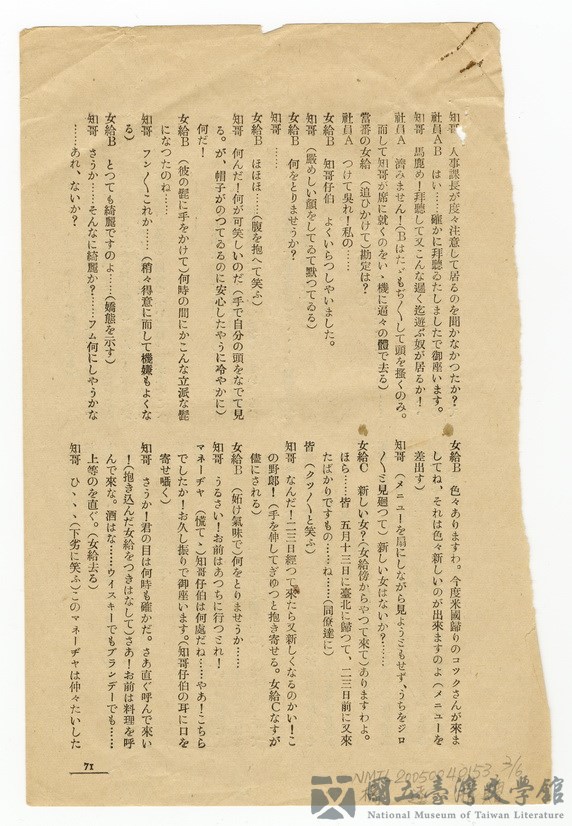 知哥　人事課長が度々注意して居るのを聞かなかつたか？
社員AB　はい……確かに拜聽ゐたしましたで御座います。
知哥　馬鹿め！拜聽して又こんな遲く迄遊ぶ奴が居るか！
社員A　濟みません！（Bはたゞもぢ〳〵して頭を搔くのみ。
而して知哥が席に就くのをいゝ機に逼々の體で去る）
當番の女給　（追ひかけて）勘定は？
社員A　つけて吳れ！私の……
女給B　知哥仔伯　よくいらつしやいました。
知哥　（嚴めしい顏をしてゐて默つてゐる）
女給B　何をとりませうか？
知哥　……
女給B　ほほほ……（腹を抱へて笑ふ）
知哥　何んだ！何が可笑しいのだ（手で自分の頭をなでて見
る。が、帽子がのつてゐるのに安心したやうに冷やかに）
何だ！
女給B　（彼の髭に手をかけて）何時の間にかこんな立派な髭
になつたのね……
知哥　フン〳〵これか……（稍々得意に而して機嫌もよくな
る）
女給B　とつても綺麗ですのよ……（嬌態を示す）
知哥　さうか……そんなに綺麗か？……フム何にしやうかな
……あれ、ないか？
女給B　色々ありますわ。今度米國歸りのコックさんが來ま
してね、それは色々新しいのが出來ますのよ（メニューを
差出す）
知哥　（メニューを扇にしながら見ようともせず、うちをジロ
〳〵と見廻つて）新しい女はないか？……
女給C　新しい女？（女給傍からやつて來て）ありますわよ。
ほら……皆　五月十三日に臺北に歸つて、二三日前に又來
たばかりですもの……ね……（同僚達に）
皆　（クツ〳〵と笑ふ）
知哥　なんだ！二三日經つて來たら又新しくなるのかい！こ
の野郎！（手を伸してぎゆつと抱き寄せる。女給Cなすが
儘にされる）
女給B　（妬け氣味で）何をとりませうか……
知哥　うるさい！お前はあつちに行つとれ！
マネーヂャ　（慌てゝ）知哥仔伯は何處だね……やあ！こちら
でしたか！お久し振りで御座います。（知哥仔伯の耳に口を
寄せ囁く）
知哥　さうか！君の目は何時も確かだ。さあ直ぐ呼んで來い
！（抱き込んだ女給をつきはなして）さあ！お前は料理を呼
んで來な。酒はな……ウイスキーでもブランデーでも……
上等のを直ぐ。（女給去る）
知哥　ひ、、、（下劣に笑ふ）このマネーヂャは仲々たいした
71
NMTL20050040153 3/6
國立臺灣文學館
National Museum of Taiwan Literature